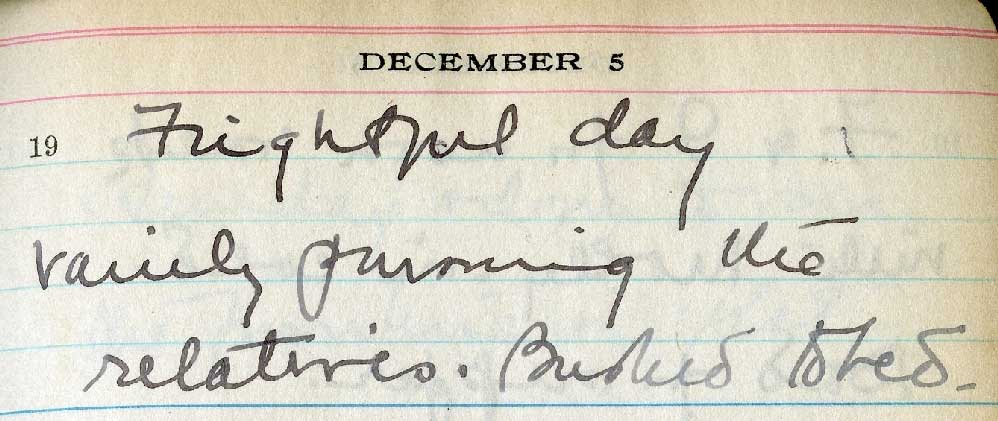 DECEMBER 5
19 Frightful day
vainly pursuing the
relatives. Bushed to bed.